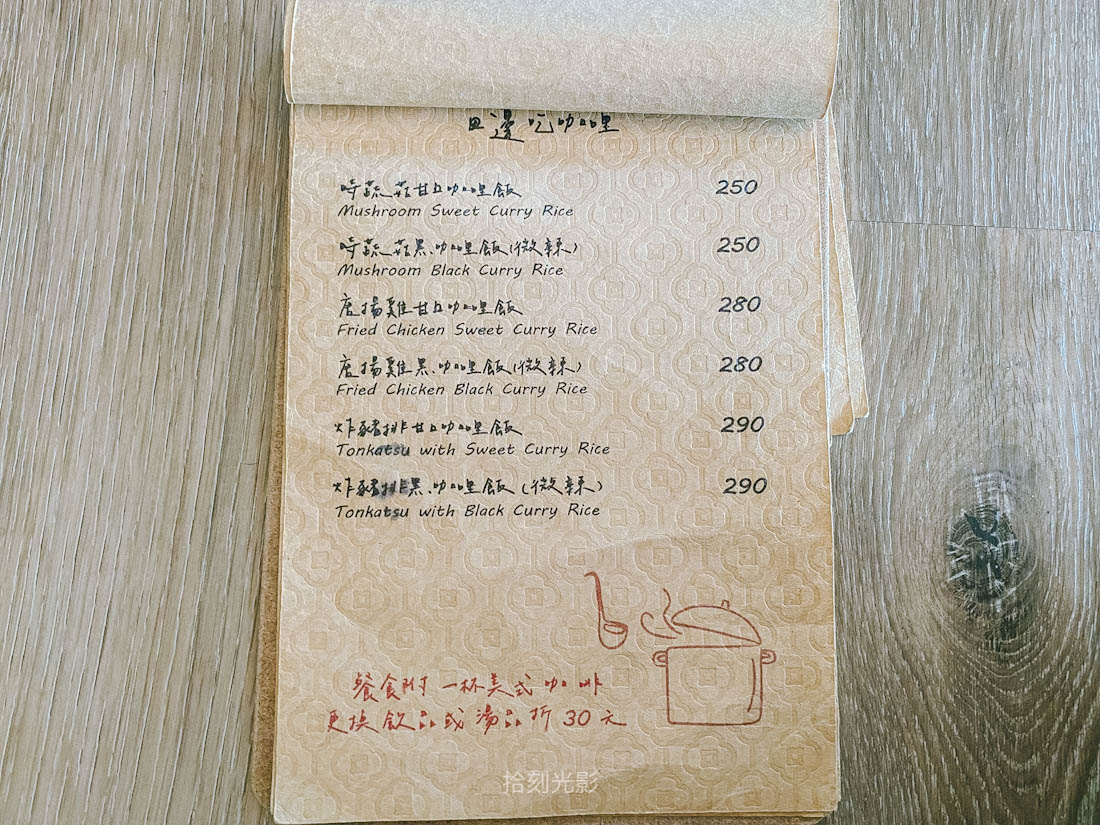 田邊吃咖哩
時蔬菇甘口咖哩飯 250
Mushroom Sweet Curry Rice
時蔬菇黑咖哩飯(微辣) 250
Mushroom Black Curry Rice
唐揚雞甘口咖哩飯 280
Fried Chicken Sweet Curry Rice
唐揚雞黑咖哩飯(微辣) 280
Fried Chicken Black Curry Rice
炸豬排甘口咖哩飯 290
Tonkatsu with Sweet Curry Rice
炸豬排黑咖哩飯(微辣) 290
Tonkatsu with Black Curry Rice
餐食附一杯美式咖啡
更換飲品或湯品折30元
拾刻光影